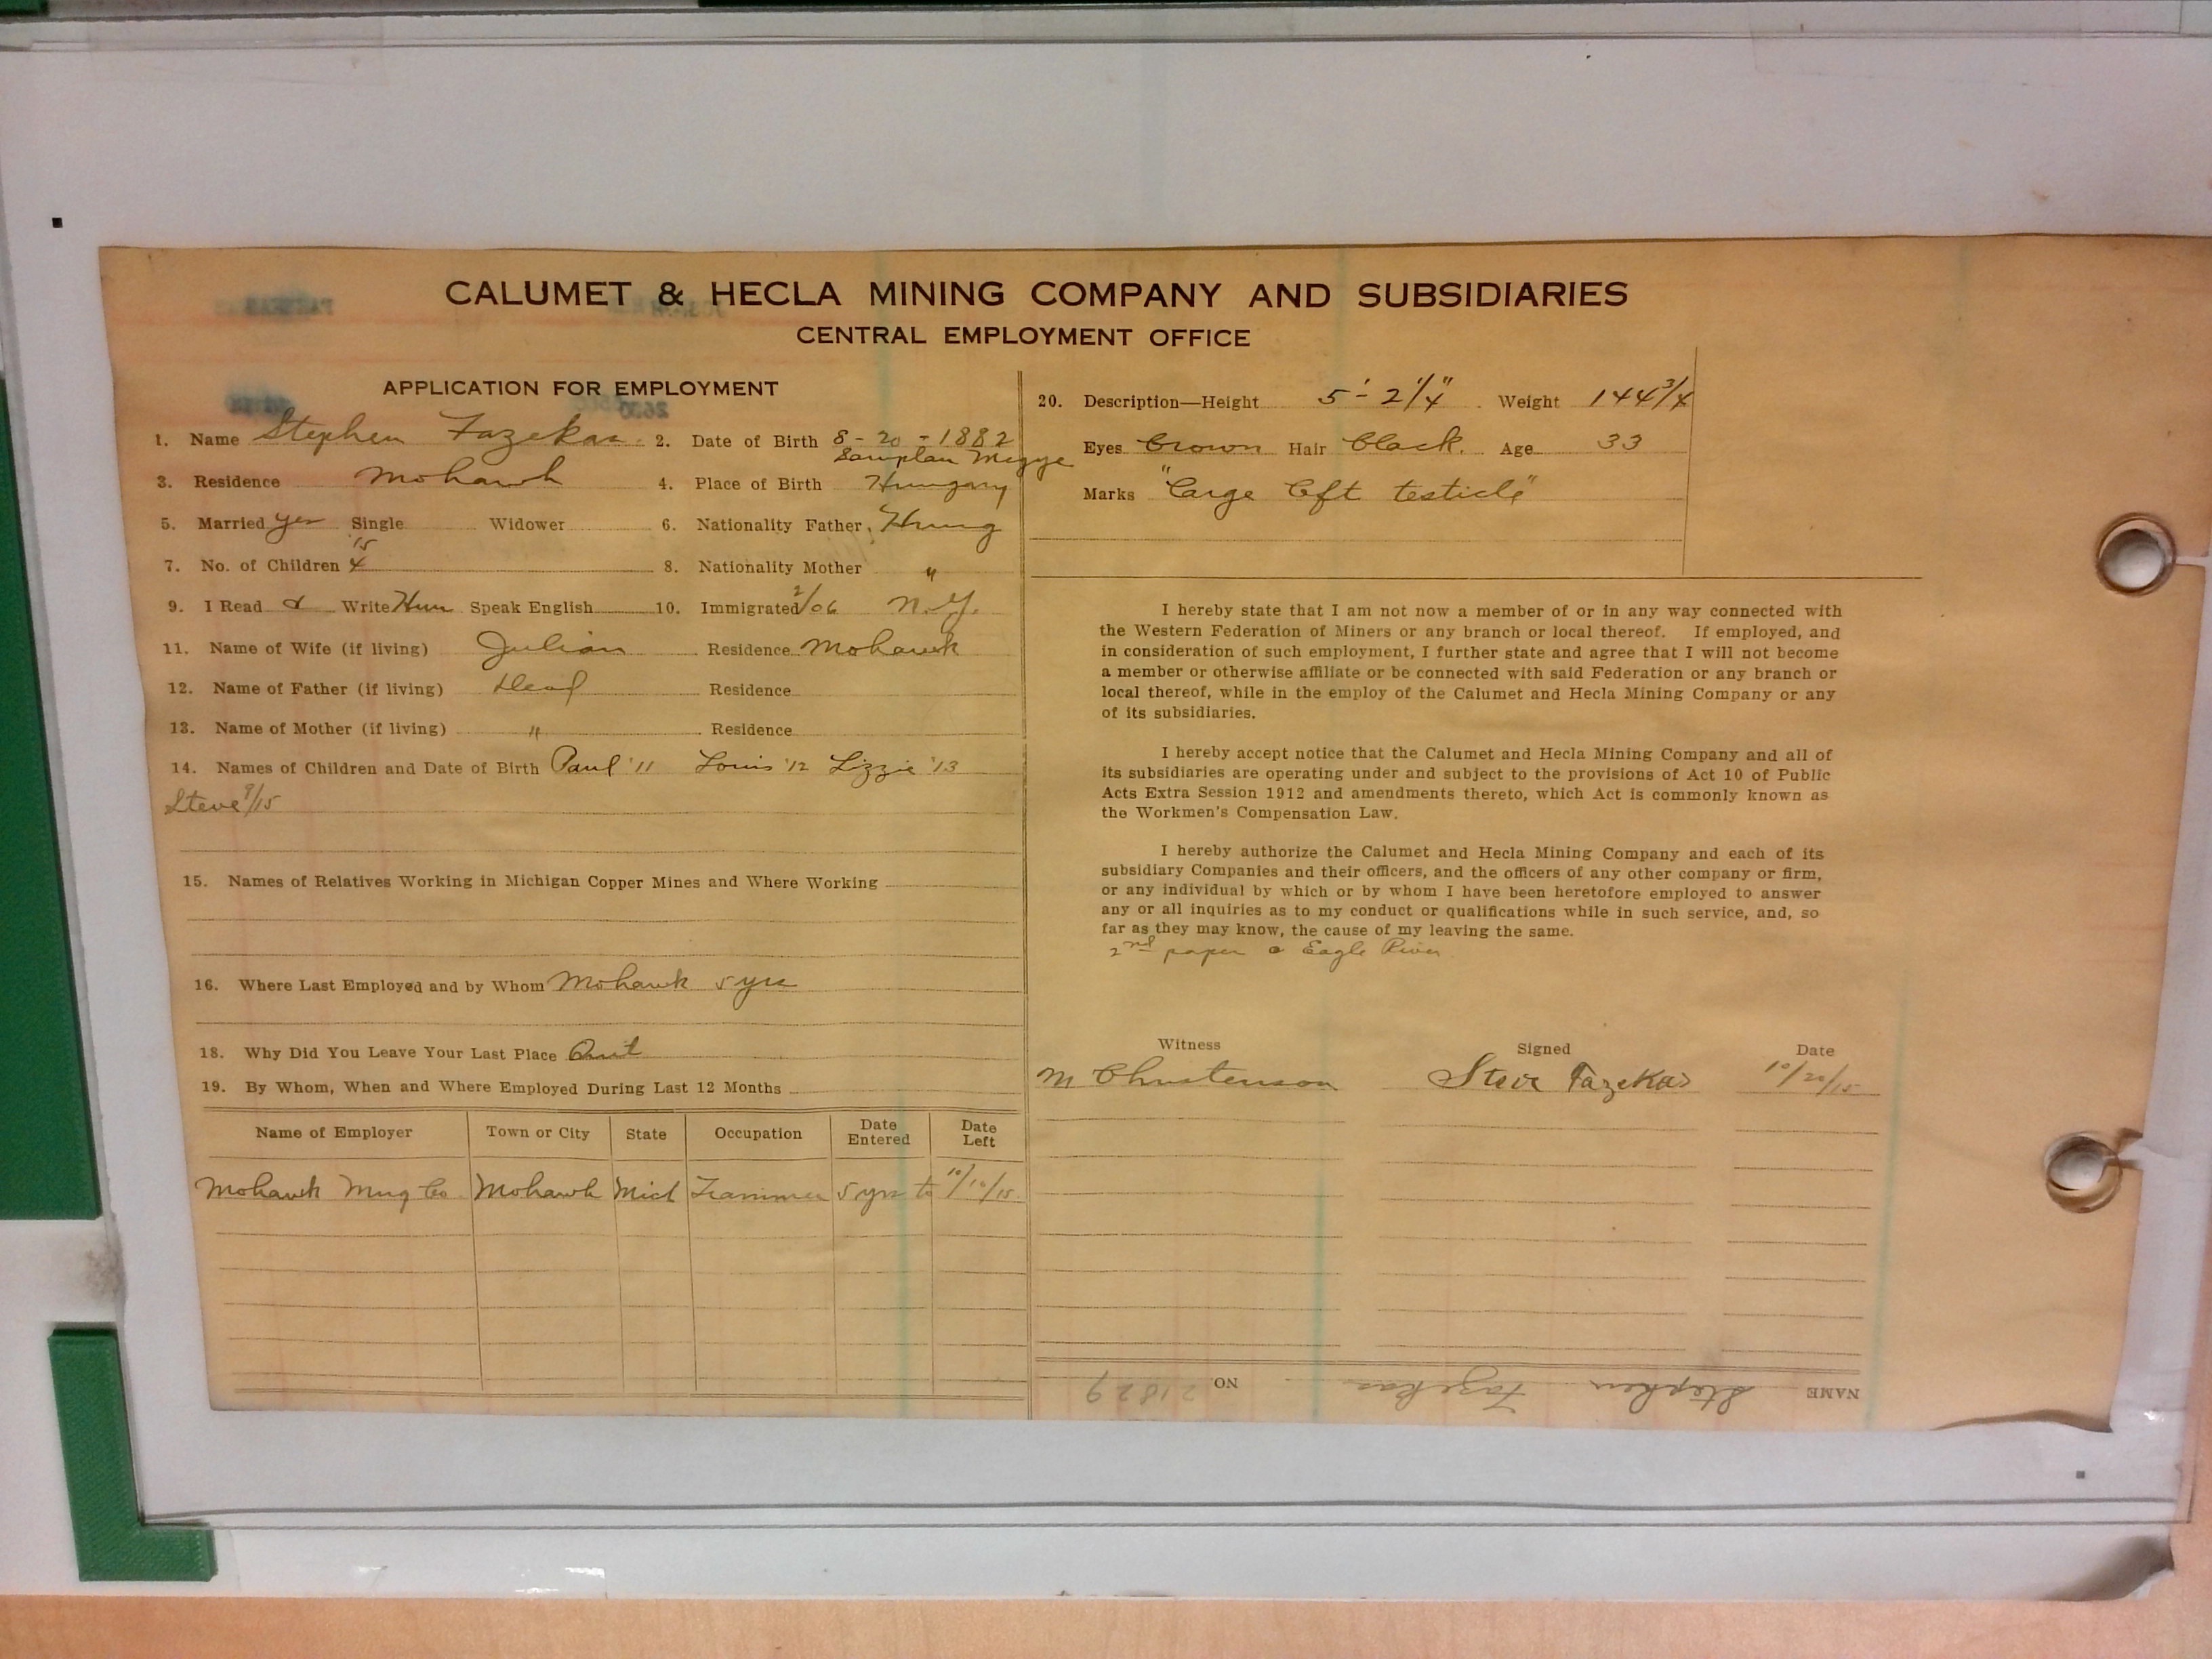 CALUMET & HECLA MINING COMPANY AND SUBSIDIARIES
CENTRAL EMPLOYMENT OFFICE
APPLICATION FOR EMPLOYMENT
1. Name Stephen Fazekas 2. Date of Birth 8-20-1882
Megye
3. Residence Mohawk 4. Place of Birth Hungary
5. Married yes Single Widower 6. Nationality Father Hung
15
7. No. of Children 4 8. Nationality Mother "
9. I Read & Write Hun Speak English 10. Immigrated 2/06 N.Y.
11. Name of Wife (if living) Julian Residence Mohawk
12. Name of Father (if living) Dead Residence
13. Name of Mother (if living) " Residence
14. Names of Children and Date of Birth Paul '11 Louis '12 Lizzie '13
Steve 9/15
15. Names of Relatives Working in Michigan Copper Mines and Where Working
16. Where Last Employed and by Whom Mohawk 5 yrs
18. Why Did You Leave Your Last Place Quit
19. By Whom, When and Where Employed During Last 12 Months
Name of Employer Town or City State Occupation Date Entered Date Left
Mohawk Mng Co Mohawk Mich Trammer 5 yrs to 10/10/15
20. Description—Height 5'-2 1/4" Weight 144 3/4
Eyes Brown Hair Black. Age 33
Marks "Large left testicle"
I hereby state that I am not now a member of or in any way connected with
the Western Federation of Miners or any branch or local thereof. If employed, and
in consideration of such employment, I further state and agree that I will not become
a member or otherwise affiliate or be connected with said Federation or any branch or
local thereof, while in the employ of the Calumet and Hecla Mining Company or any
of its subsidiaries.
I hereby accept notice that the Calumet and Hecla Mining Company and all of
its subsidiaries are operating under and subject to the provisions of Act 10 of Public
Acts Extra Session 1912 and amendments thereto, which Act is commonly known as
the Workmen's Compensation Law.
I hereby authorize the Calumet and Hecla Mining Company and each of its
subsidiary Companies and their officers, and the officers of any other company or firm,
or any individual by which or by whom I have been heretofore employed to answer
any or all inquiries as to my conduct or qualifications while in such service, and, so
far as they may know, the cause of my leaving the same.
2nd paper @ Eagle River
Witness Signed Date
M Christenson Steve Fazekas 10/20/15
NAME Stephen Fazekas NO 21829